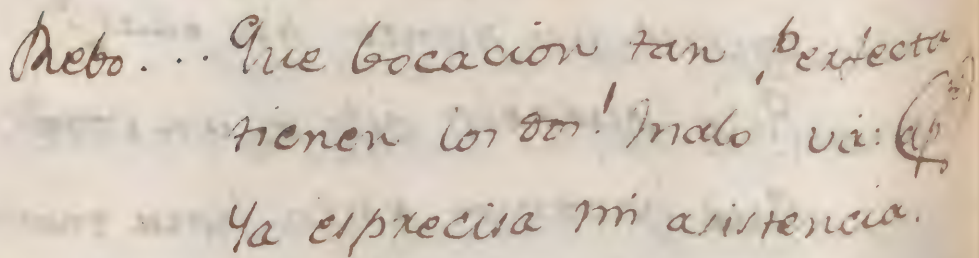 Rebo... Que bocacion tan perfecta
tienen los dos! malo va: (ap)
Ya es precisa mi asistencia.